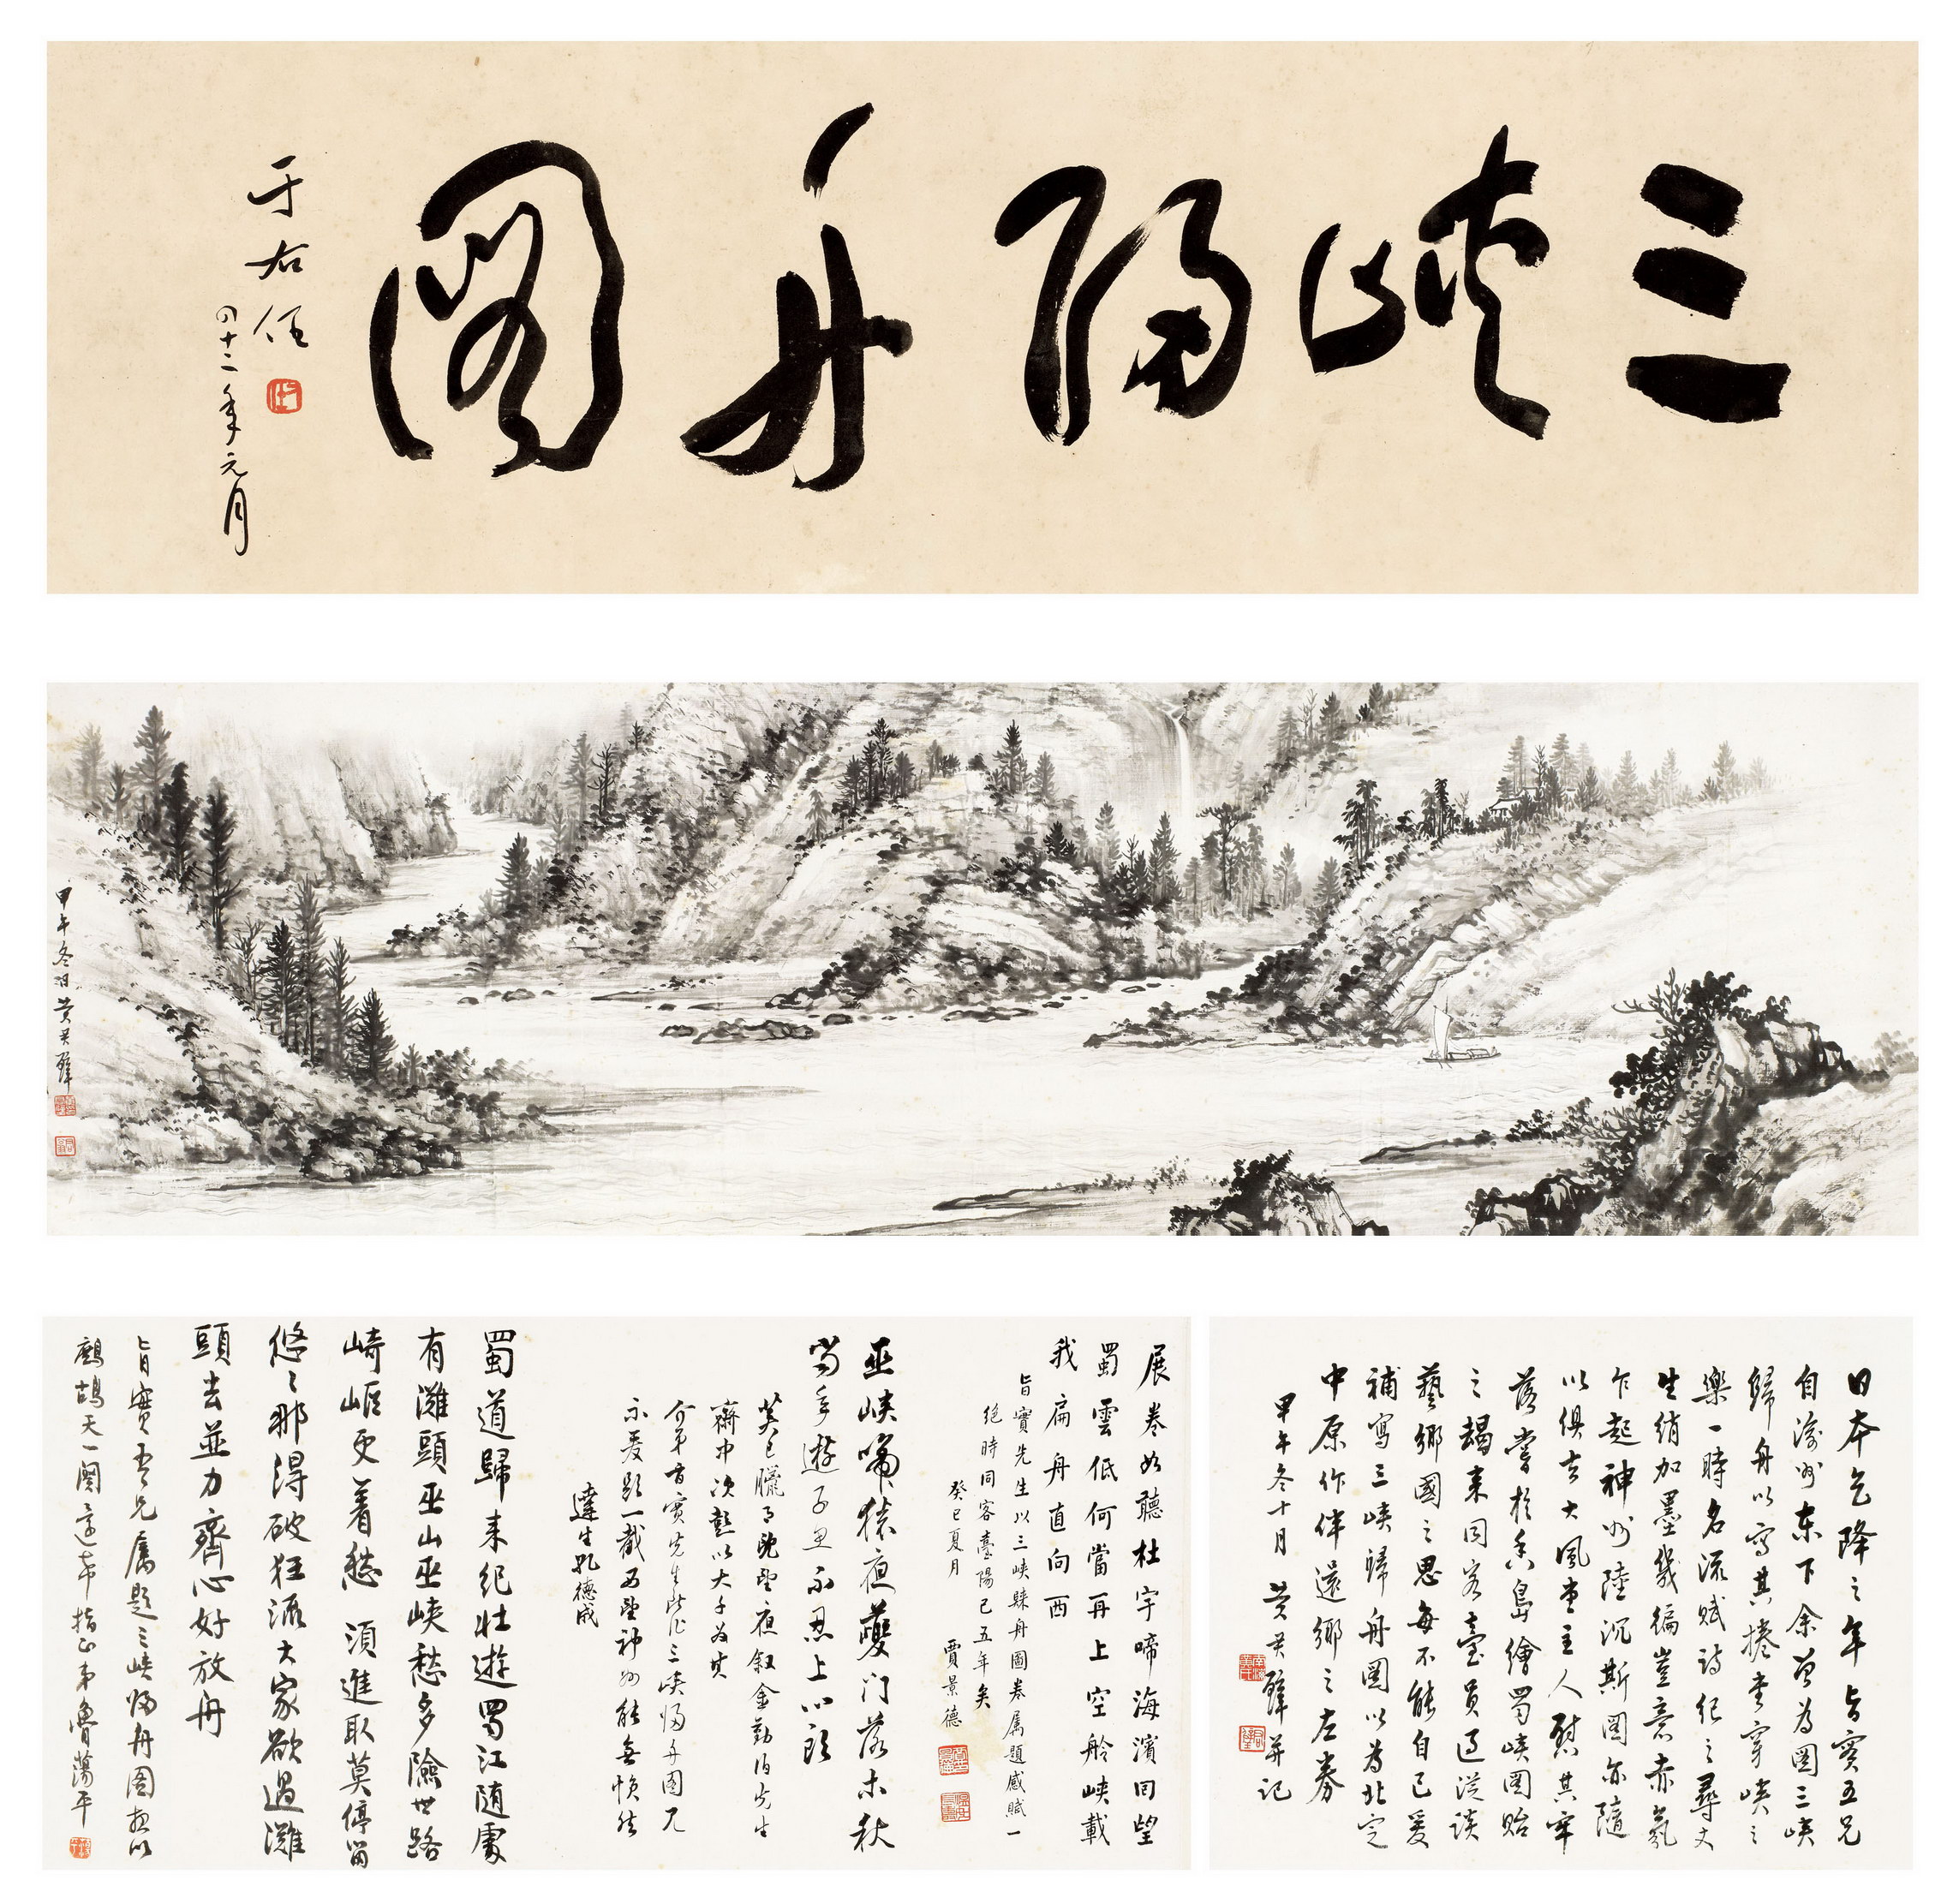 三峽歸舟圖
于右任
四十二年元月
甲午冬日黃君璧
日本乞降之年旨實五兄
自渝州東下余曾為圖三峽
歸舟以寫其捲畫穿峽之
樂一時名流賦詩紀之尋丈
生綃加墨幾徧豈意赤氛
乍起神州陸沉斯圖亦隨
以俱去大風堂主人慰其牢
落嘗於香島繪蜀峽圖貽
之朅來同客臺員過從談
藝鄉國之思每不能自已爰
補寫三峽歸舟圖以為北定
中原作伴還鄉之左券
甲午冬十月 黃君璧并記
展卷如聽杜宇啼海濱回望
蜀雲低何當再上空舲峽載
我扁舟直向西
旨實先生以三峽歸舟圖卷屬題感賦一
絕時同客臺陽已五年矣
癸巳夏月 賈景德
巫峽啼猿夜夔門落木秋
當年遊子思不忍上心頭
癸巳臘月
齋中次
介弟旨實先生此作三峽歸舟圖
示爰題一截西望神州能無悵然
達生孔德成
蜀道歸來紀壯遊蜀江隨處
有灘頭巫山巫峽愁多險世路
崎嶇更着愁 須進取莫停留
悠悠那得破狂流大家欲過灘
頭去並力齊心好放舟
旨實吾兄屬題三峽歸舟圖
鷓鴣天一闋 指正弟魯蕩平